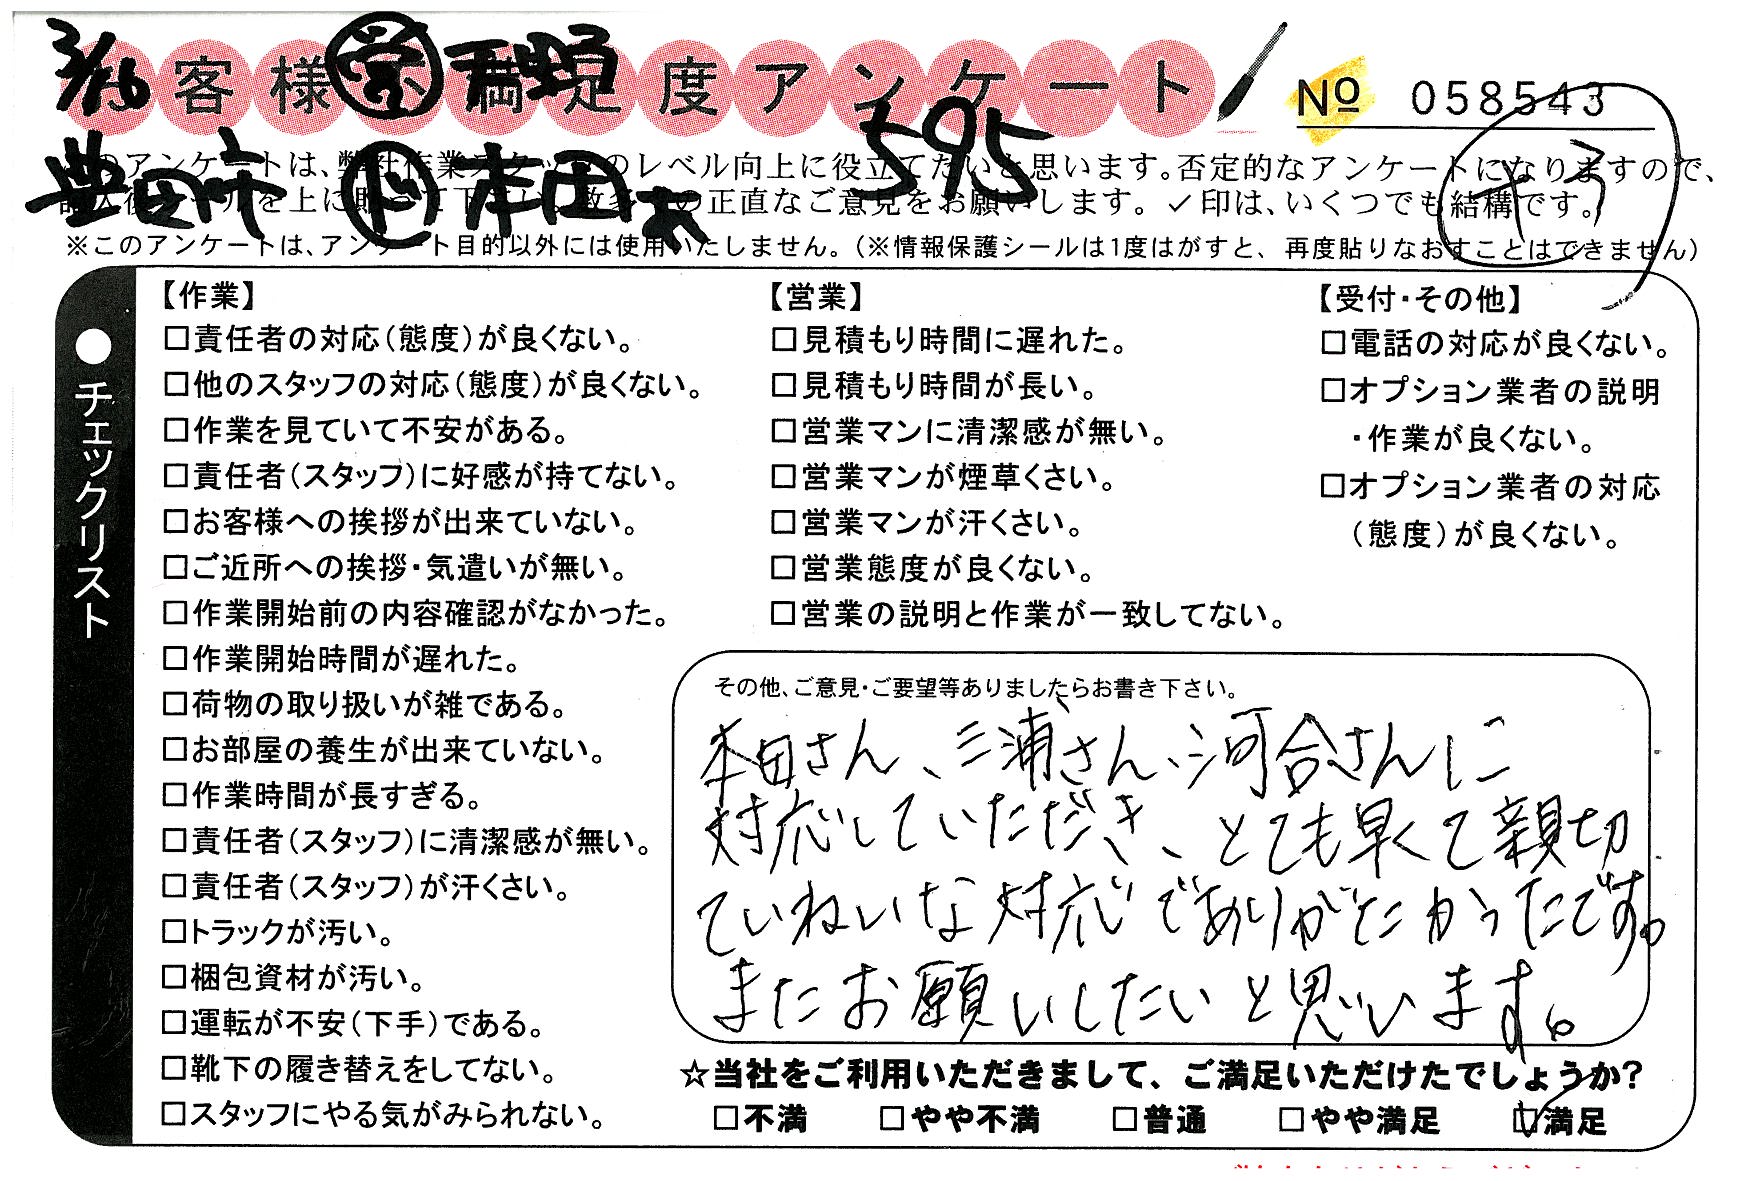 3/16 お客様不満足度アンケート No 058543
営 595 +3
豊田市 ド 本田
このアンケートは、弊社作業スタッフのレベル向上に役立てたいと思います。否定的なアンケートになりますので、
を上に貼って下 の正直なご意見をお願いします。✓印は、いくつでも結構です。
※このアンケートは、アンケート目的以外には使用いたしません。(※情報保護シールは1度はがすと、再度貼りなおすことはできません)
●チェックリスト
【作業】
□責任者の対応(態度)が良くない。
□他のスタッフの対応(態度)が良くない。
□作業を見ていて不安がある。
□責任者(スタッフ)に好感が持てない。
□お客様への挨拶が出来ていない。
□ご近所への挨拶・気遣いが無い。
□作業開始前の内容確認がなかった。
□作業開始時間が遅れた。
□荷物の取り扱いが雑である。
□お部屋の養生が出来ていない。
□作業時間が長すぎる。
□責任者(スタッフ)に清潔感が無い。
□責任者(スタッフ)が汗くさい。
□トラックが汚い。
□梱包資材が汚い。
□運転が不安(下手)である。
□靴下の履き替えをしてない。
□スタッフにやる気がみられない。
【営業】
□見積もり時間に遅れた。
□見積もり時間が長い。
□営業マンに清潔感が無い。
□営業マンが煙草くさい。
□営業マンが汗くさい。
□営業態度が良くない。
□営業の説明と作業が一致してない。
【受付・その他】
□電話の対応が良くない。
□オプション業者の説明
・作業が良くない。
□オプション業者の対応
(態度)が良くない。
その他、ご意見・ご要望等ありましたらお書き下さい。
本田さん、三浦さん、河合さんに
対応していただき、とても早くて親切
ていねいな対応でありがたかったです。
またお願いしたいと思います。
☆当社をご利用いただきまして、ご満足いただけたでしょうか?
□不満 □やや不満 □普通 □やや満足 ☑満足